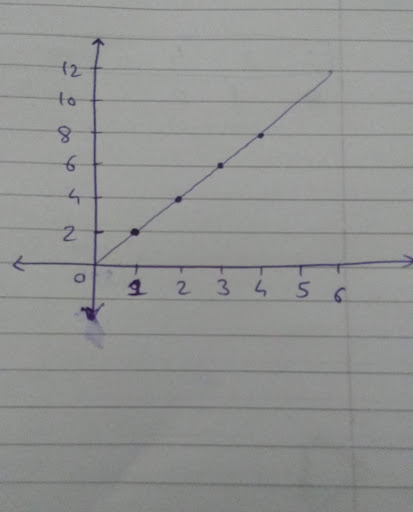 12
10
8
6
4
2
0
1 2 3 4 5 6